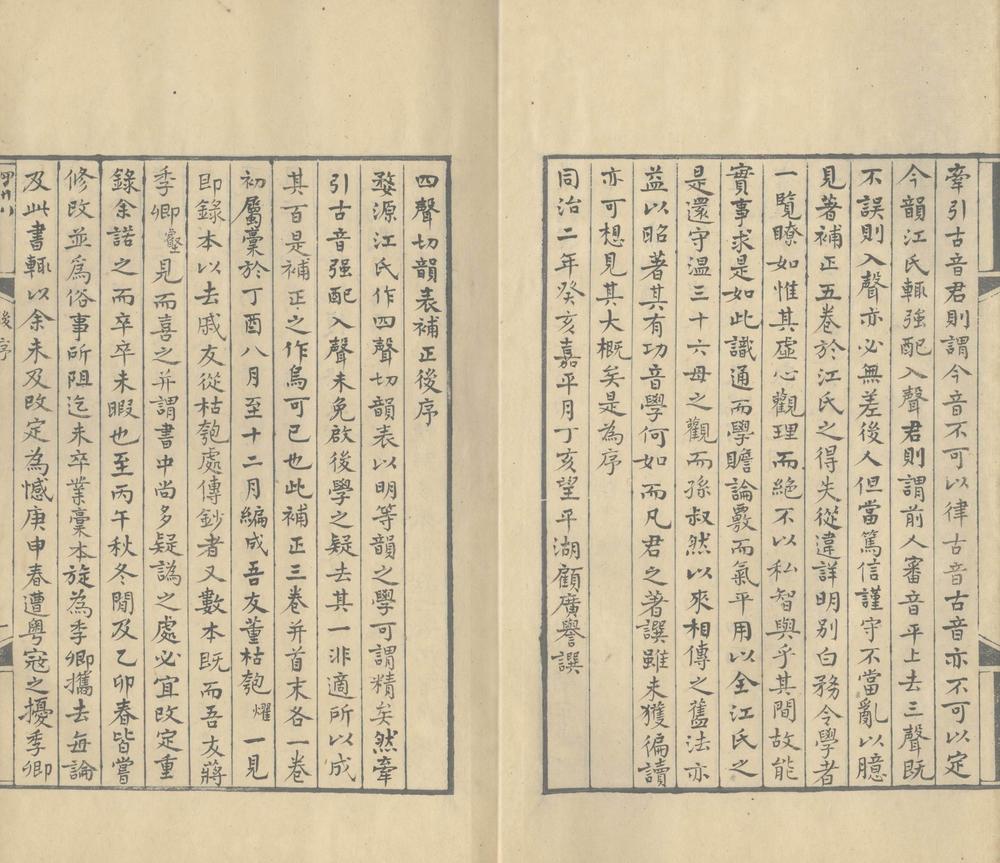 牽引古音君則謂今音不可以律古音古音亦不可以定
今韻江氏輒強配入聲君則謂前人審音平上去三聲既
不誤則入聲亦必無差後人但當篤信謹守不當亂以臆
見著補正五卷於江氏之得失從違詳明別白務令學者
一覽瞭如惟其虛心觀理而絕不以私智與乎其間故能
實事求是如此識通而學贍論覈而氣平用以全江氏之
是還守溫三十六母之觀而孫叔然以來相傳之舊法亦
益以昭著其有功音學何如而凡君之著譔雖未獲徧讀
亦可想見其大概矣是為序
同治二年癸亥嘉平月丁亥望平湖顧廣譽譔
四聲切韻表補正後序
婺源江氏作四聲切韻表以明等韻之學可謂精矣然牽
引古音强配入聲未免啟後學之疑去其一非適所以成
其百是補正之作烏可已也此補正三卷并首末各一卷
初屬稾於丁酉八月至十二月編成吾友董枯匏燿一見
即錄本以去戚友從枯匏處傳鈔者又數本既而吾友蔣
季卿壑見而喜之并謂書中尚多疑譌之處必宜改定重
錄余諾之而卒卒未暇也至丙午秋冬閒及乙卯春皆嘗
修改並爲俗事所阻迄未卒業稾本旋為季卿攜去每論
及此書輒以余未及改定為憾庚申春遭粤寇之擾季卿
後序